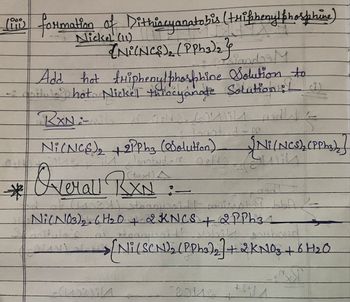 (iii) formation of Dithiocyanatobis (triphenylphosphine)
Nickel (II)
{Ni(NCS)2 (PPh3)2}
Add hot triphenylphosphine Solution to
hot Nickel thiocyanate Solution :-
RXN :-
Ni(NCS)2 + 2PPh3 (Solution) → [Ni(NCS)2(PPh3)2]
* Overall RXN :-
Ni(NO3)2.6H2O + 2KNCS + 2PPh3
→ [Ni(SCN)2(PPh3)2] + 2KNO3 + 6H2O